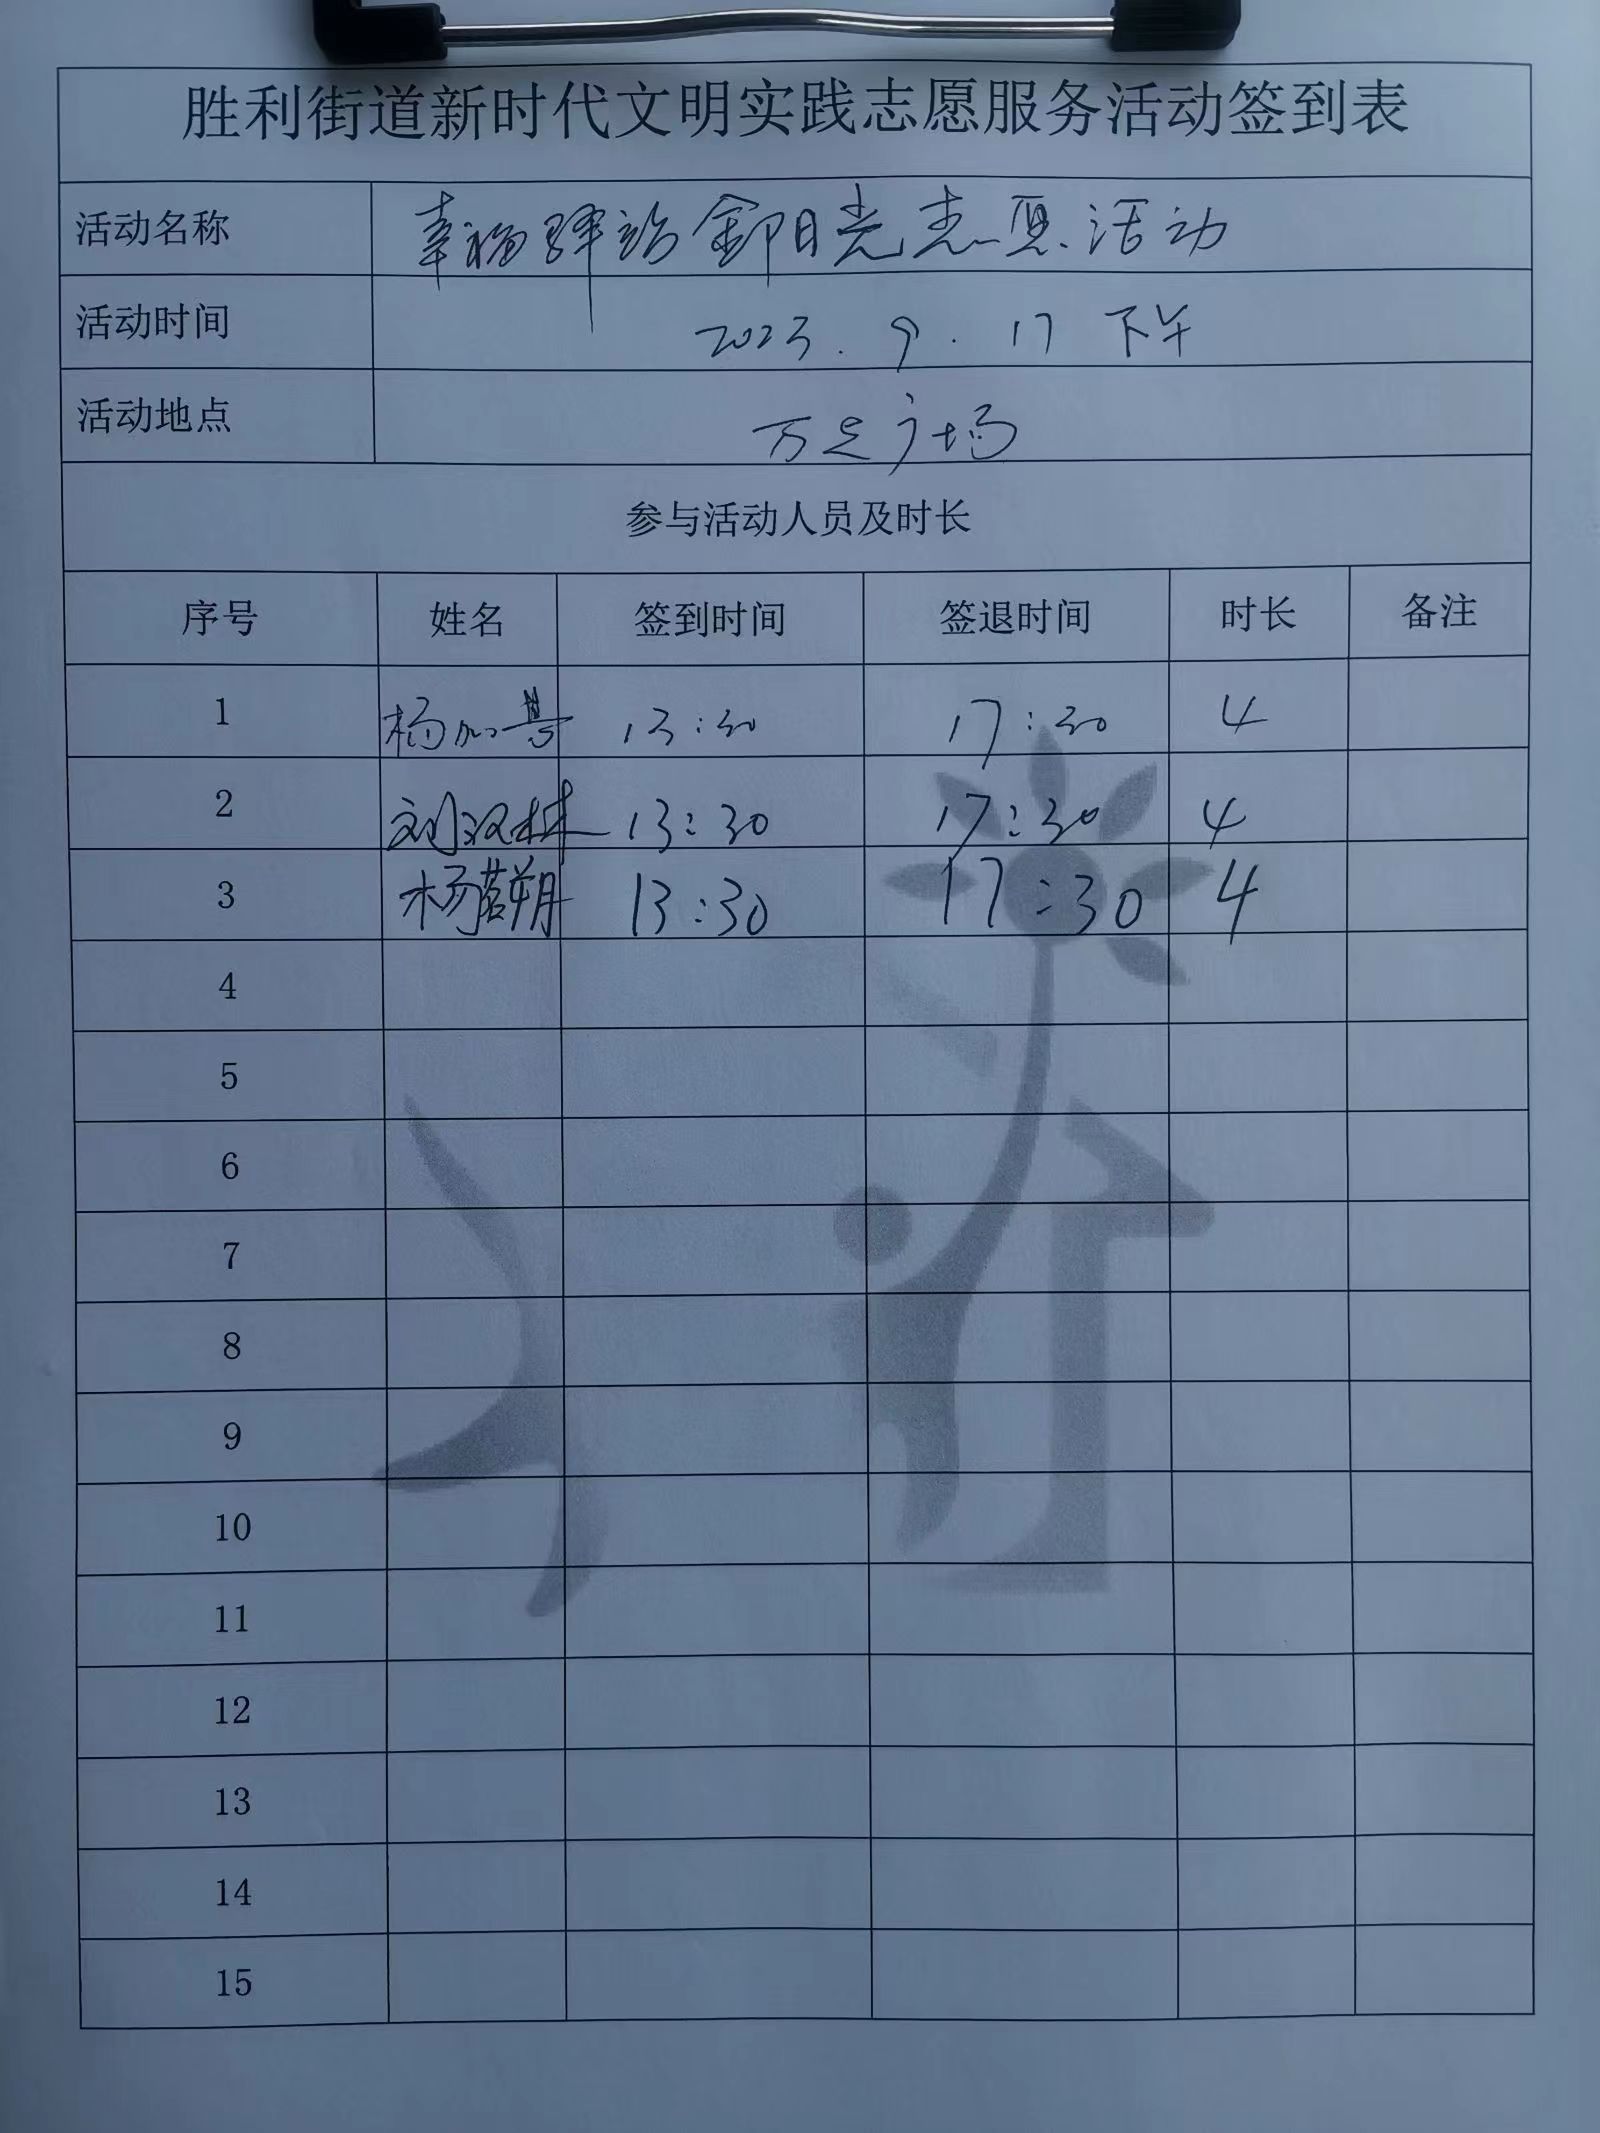 胜利街道新时代文明实践志愿服务活动签到表
活动名称 幸福驿站 阳光志愿活动
活动时间 2023.9.17 下午
活动地点 万达广场
参与活动人员及时长
序号 姓名 签到时间 签退时间 时长 备注
1 杨加 13:30 17:30 4
2 刘汉林 13:30 17:30 4
3 杨 朔 13:30 17:30 4
4
5
6
7
8
9
10
11
12
13
14
15